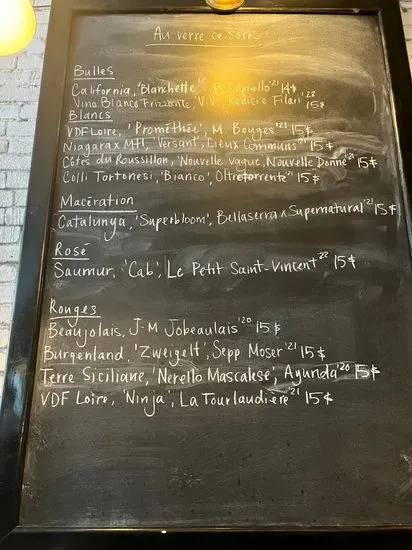 Au verre ce soir
Bulles
California, 'Blanchette' '21 14$
Vino Bianco Frizzante, 'V.V' Radici e Filari '22 15$
Blancs
VDF Loire, 'Prométhée', M Bouges '21 15$
Niagara x Mtl, 'Versant', Lieux Communs '21 15$
Côtes du Roussillon, 'Nouvelle vague', Nouvelle Donne '21 15$
Colli Tortonesi, 'Bianco', Oltretorrente '21 15$
Macération
Catalunya, 'Superbloom', Bellaserra x Supernatural '21 15$
Rosé
Saumur, 'Cab', Le Petit Saint-Vincent '22 15$
Rouges
Beaujolais, J-M Jobeaulais '20 15$
Burgenland, 'Zweigelt', Sepp Moser '21 15$
Terre Siciliane, 'Nerello Mascalese', Ayunda '20 15$
VDF Loire, 'Ninja', La Tourlaudière '21 15$